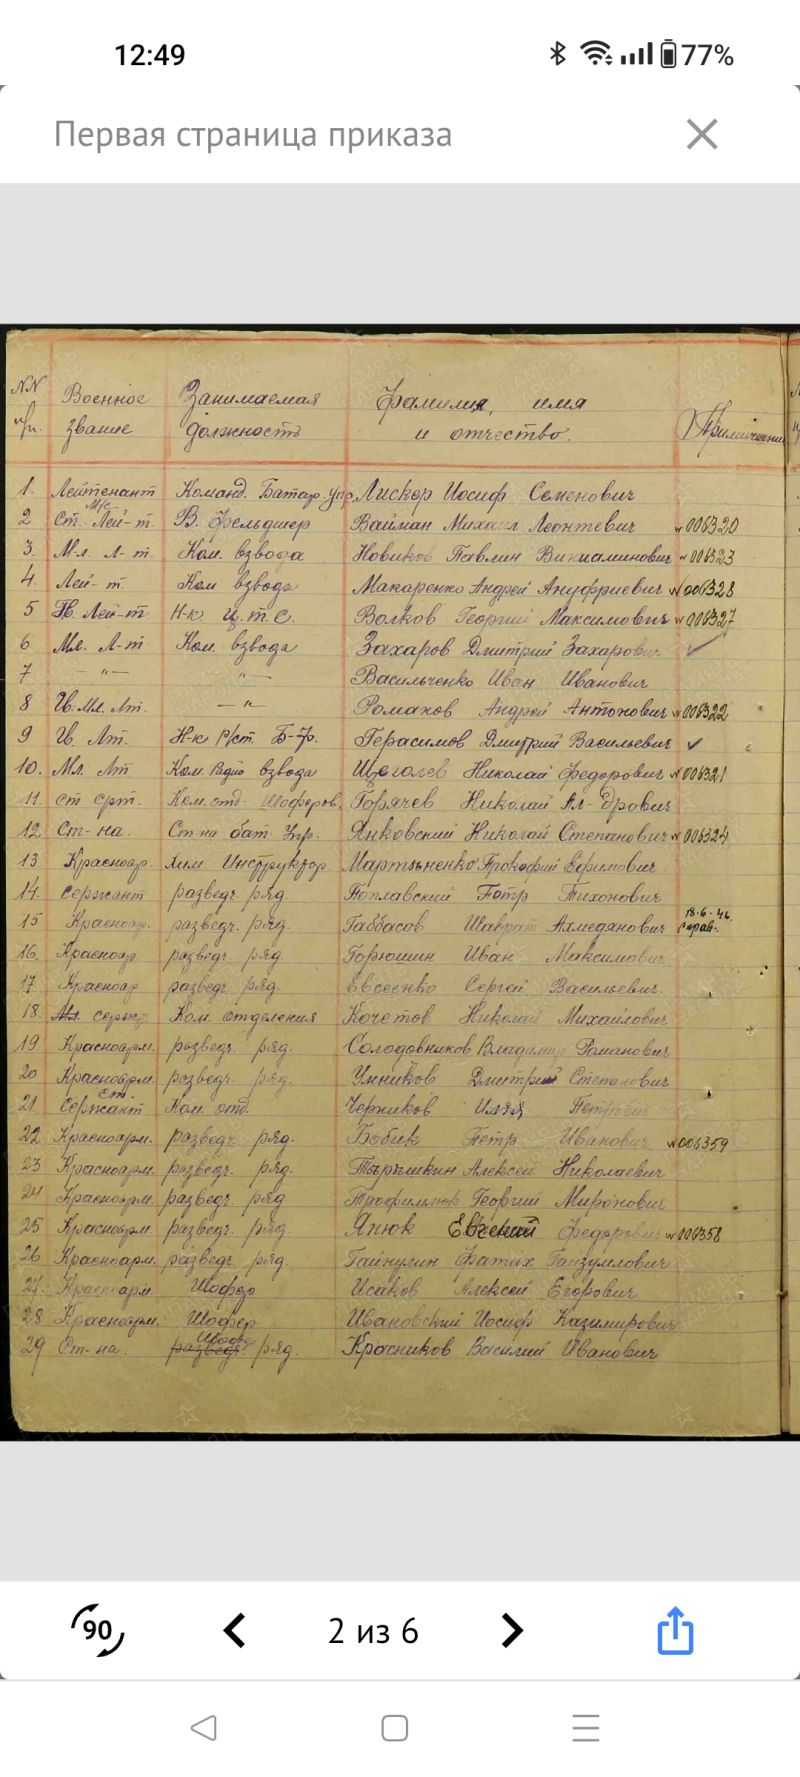 12:49 77%
Первая страница приказа
NN Военное Занимаемая фамилия, имя
п/п. звание должность и отчество. Примечание
1. Лейтенант Команд. Батар. упр. Лискер Иосиф Семенович
2 Ст. М/с Лей-т. В. фельдшер Вайман Михаил Леонтевич № 006320
3. Мл. Л-т. Ком. взвода Новиков Павлин Виниаминович № 006323
4. Лей-т. Ком взвода Макаренко Андрей Ануфриевич № 006328
5 Гв. Лей-т Н-к ц.т.с. Волков Георгий Максимович № 006327
6 Мл. Л-т Ком. взвода Захаров Дмитрий Захарович ✓
7 —"— —"— Васильченко Иван Иванович
8 Гв. Мл. Лт. —"— Романов Андрей Антонович № 006322
9 Гв. Лт. Н-к Р/ст. Б-р. Герасимов Дмитрий Васильевич ✓
10. Мл. Лт Ком. Радио взвода Щеголев Николай Федорович № 006321
11. Ст срт. Ком. отд. Шоферов. Горячев Николай Ал-дрович
12. Ст-на. Ст-на бат. Упр. Янковский Николай Степанович № 006324
13 Красноар. Хим. Инструктор Мартыненко Прокофий Ефимович
14. Сержант разведч ряд. Поплавский Петр Тихонович
15 Красноар. разведч. ряд. Габбасов Шаврат Ахмедянович 18.6-46. справ.
16. Красноар разведч ряд. Горюшин Иван Максимович
17. Красноар разведч ряд. Евсеенко Сергей Васильевич.
18. Мл. серж. Ком. отделения Кочетов Николай Михайлович
19 Красноарм. разведч. ряд. Солодовников Владимир Романович
20 Красноарм. разведч. ряд. Умников Дмитрий Степанович
21 ст. Сержант Ком. отд. Черников Илья Петрович
22 Красноарм. разведч. ряд. Бобик Петр Иванович № 006359
23 Красноарм. разведч. ряд. Алексей Николаевич
24 Красноарм. разведч. ряд Трофимлюк Георгий Миронович
25 Красноарм. разведч. ряд Янюк Евгений Федорович № 006358
26 Красноарм. разведч. ряд. Гайнулин Фатих
27. Красноарм. Шофер Исаков Алексей Егорович
28 Красноарм. Шофер Ивановский Иосиф Казимирович
29 Ст-на. разведч. Шоф. ряд. Красников Василий Иванович
90 2 из 6